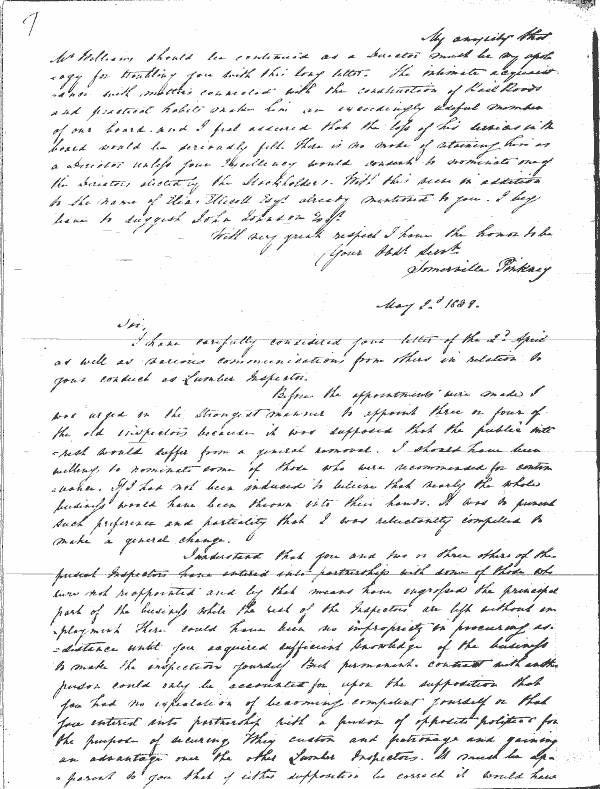 7
My anxiety that
Mr Williams should be continued as a Director must be my apol
-ogy for troubling you with this long letter. The intimate acquaint
-ance with matters connected with the construction of Rail Roads
and practical habits make him an exceedingly useful member
of our board and I feel assured that the loss of his services in the
board would be seriously felt. There is no mode of retaining him as
a Director unless your Excellency would consent to nominate one of
the Directors elected by the Stockholders. With this view in addition
to the name of Elias Ellicott Esqr already mentioned to you. I beg
leave to suggest John Johnson Esqr.
With very great respect I have the honor to be
Your Obdt Servt
Somerville Pinkney
May 2d 1839.
Sir,
I have carefully considered your letter of the 2d April
as well as various communications from others in relation to
your conduct as Lumber Inspector.
Before the appointments were made I
was urged in the strongest manner to appoint three or four of
the old inspectors because it was supposed that the public inte
-rest would suffer from a general removal. I should have been
willing to nominate some of those who were recommended for contin
-uance. If I had not been induced to believe that nearly the whole
business would have been thrown into their hands. It was to prevent
such preference and partiality that I was reluctantly compelled to
make a general change.
I understand that you and two or three others of the
present Inspectors have entered into partnership with some of those who
were not reappointed and by that means have engrossed the principal
part of the business while the rest of the Inspectors are left without em
-ployment There could have been no impropriety in procuring as-
-sistance until you acquired sufficient knowledge of the business
to make the inspection yourself But permanent contract with another
person could only be accounted for upon the supposition that
you had no expectation of becoming competent yourself or that
you entered into partnership with a person of opposite politics for
the purpose of securing Whig custom and patronage and gaining
an advantage over the other Lumber Inspectors. It must be ap-
-parent to you that if either supposition be correct it would have